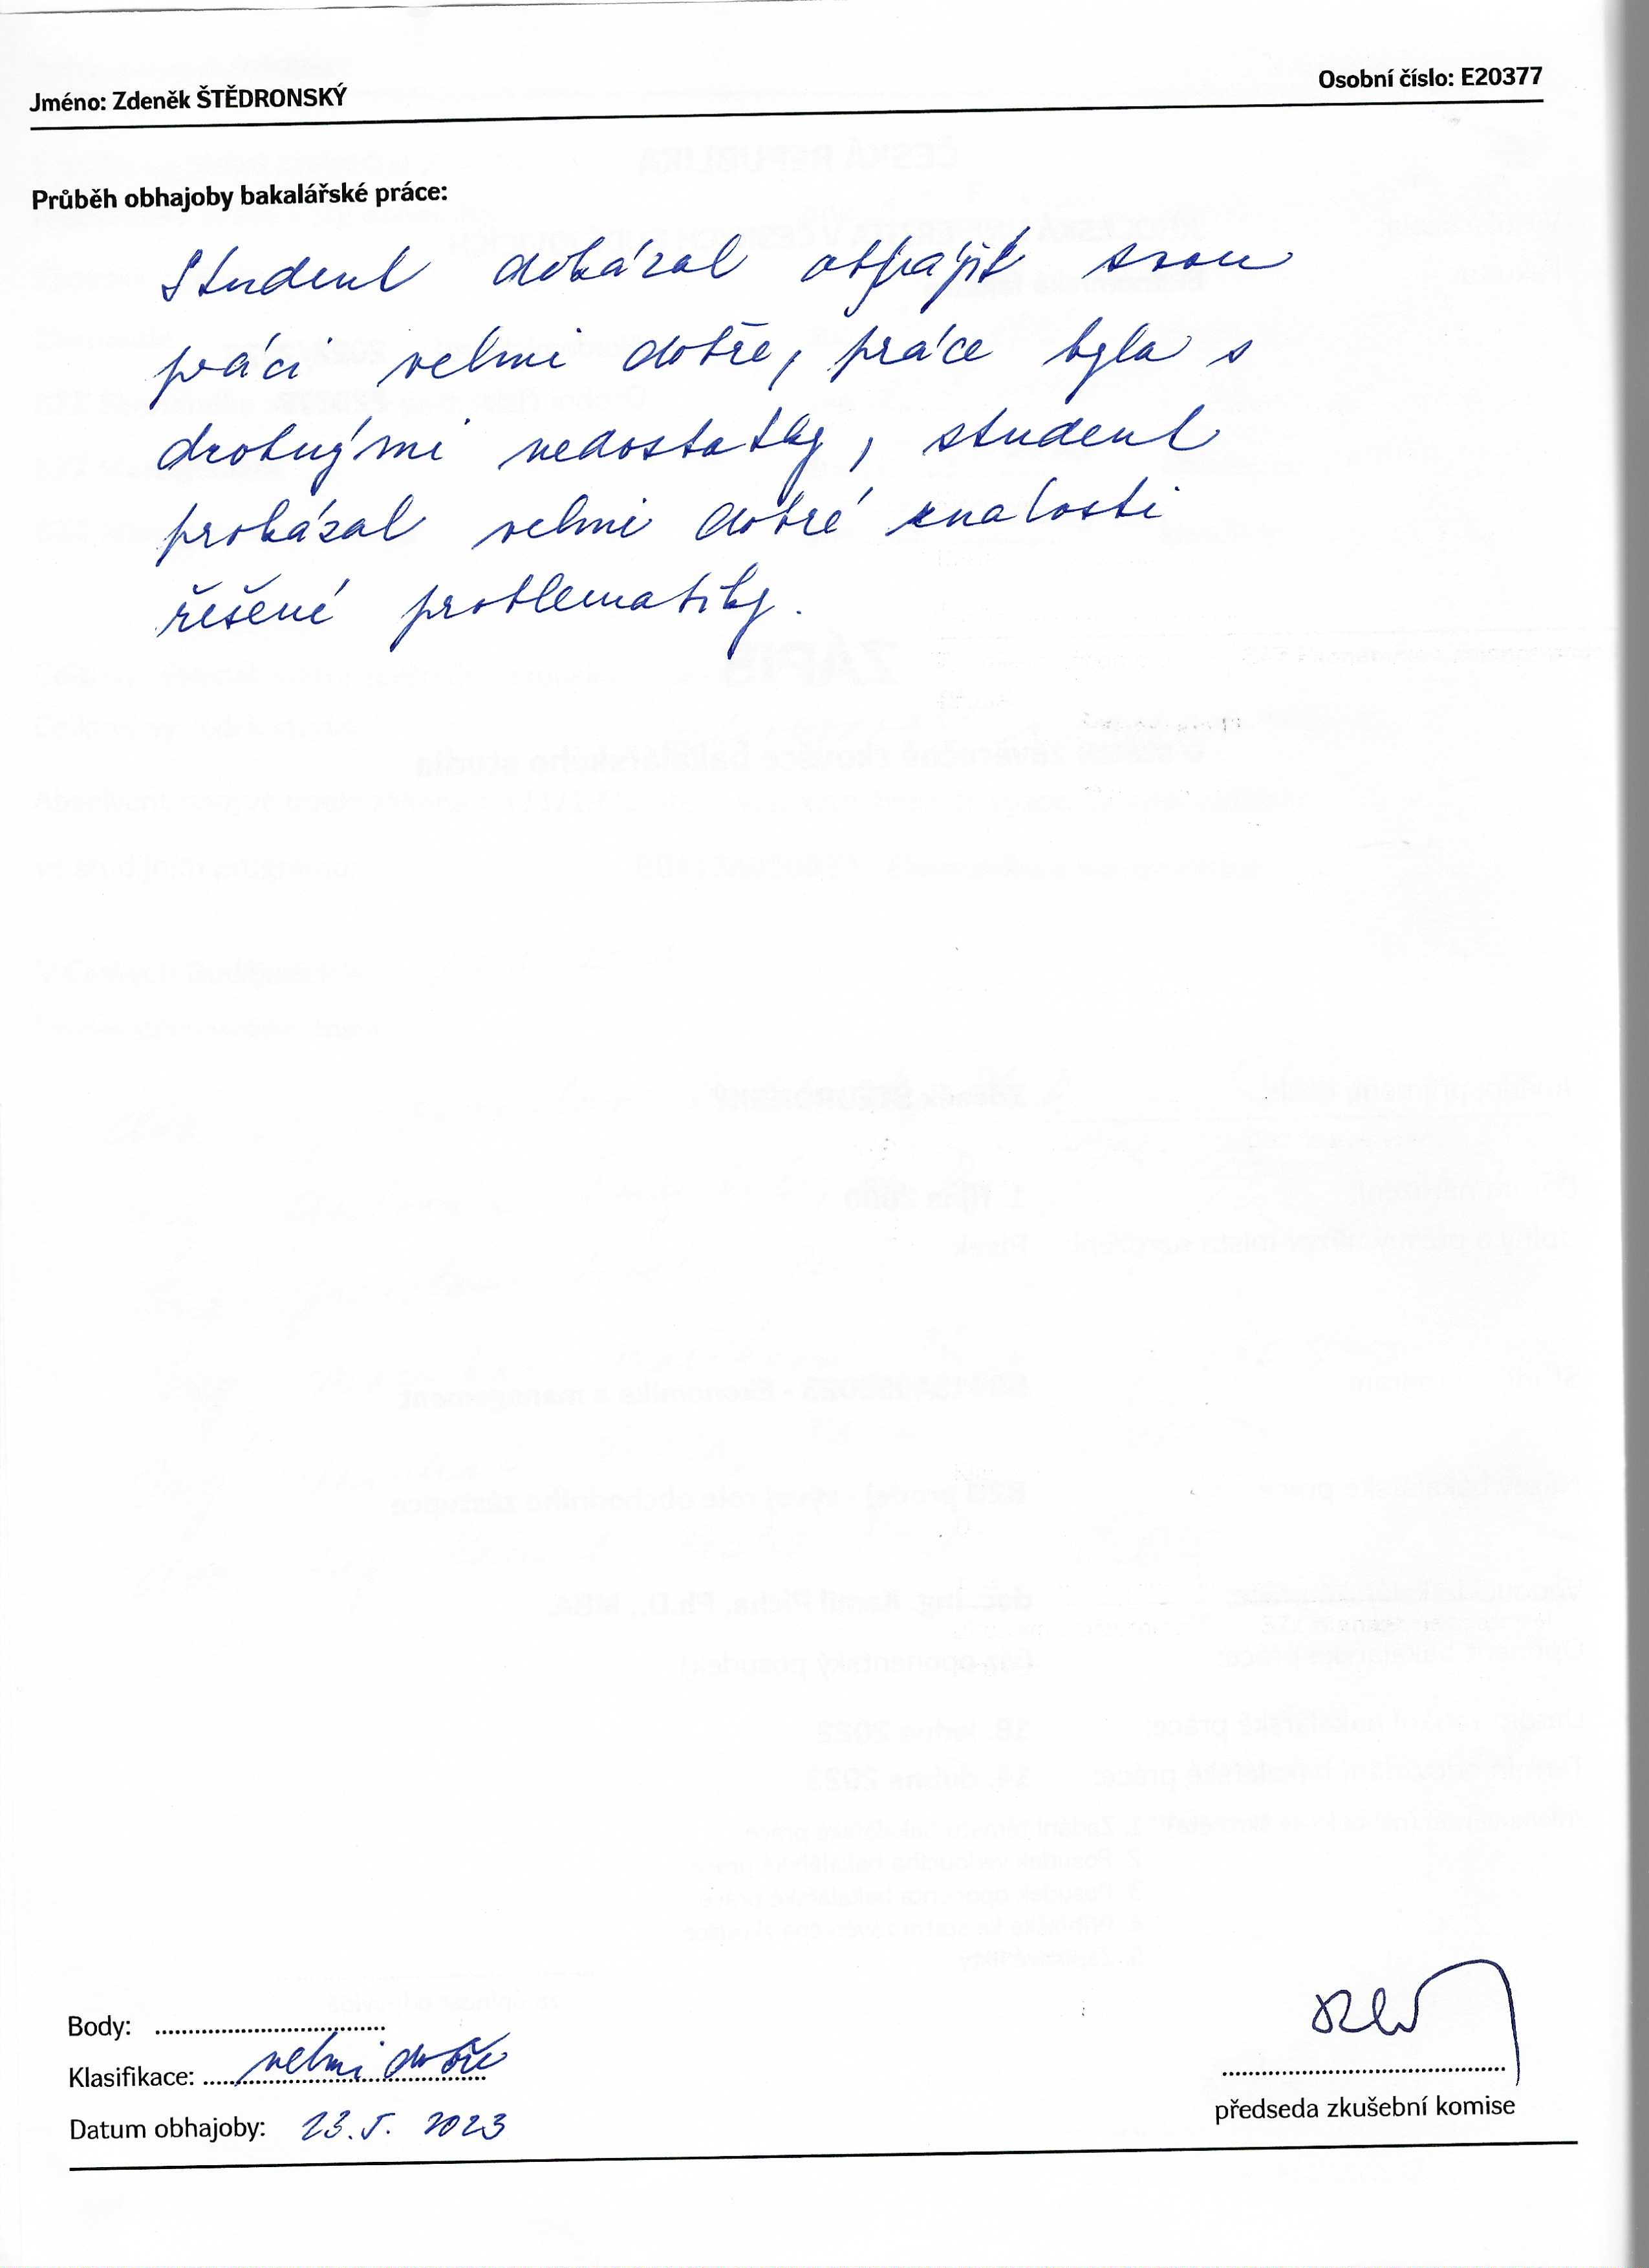 Jméno: Zdeněk ŠTĚDRONSKÝ Osobní číslo: E20377
Průběh obhajoby bakalářské práce:
Student dokázal obhájit svou
práci velmi dobře, práce byla s
drobnými nedostatky, student
prokázal velmi dobré znalosti
řešené problematiky.
Body: ..................................
Klasifikace: velmi dobře
Datum obhajoby: 23. 5. 2023
předseda zkušební komise